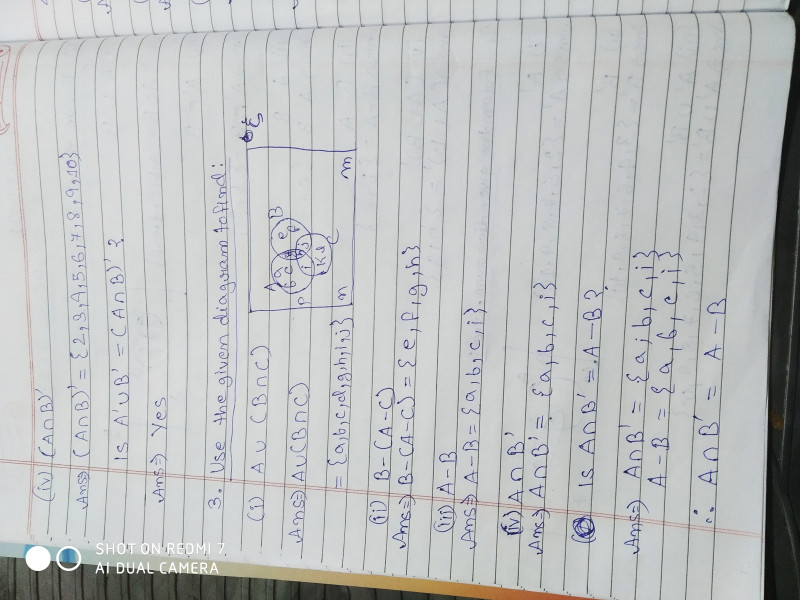 (iv) (A∩B)'
Ans⇒ (A∩B)' = {2,3,4,5,6,7,8,9,10}
Is A'∪B' = (A∩B)' ?
Ans⇒ Yes
3. Use the given diagram to find:
(i) A∪(B∩C)
Ans⇒ A∪(B∩C)
= {a,b,c,d,g,h,i,j}
ξ
A
B
C
a
b
c
e
f
i
j
k
l
p
n
m
(ii) B-(A-C)
Ans⇒ B-(A-C) = {e,f,g,h}
(iii) A-B
Ans⇒ A-B = {a,b,c,i}
(iv) A∩B'
Ans⇒ A∩B' = {a,b,c,i}
Is A∩B' = A-B?
Ans⇒ A∩B' = {a,b,c,i}
A-B = {a,b,c,i}
∴ A∩B' = A-B
SHOT ON REDMI 7
AI DUAL CAMERA